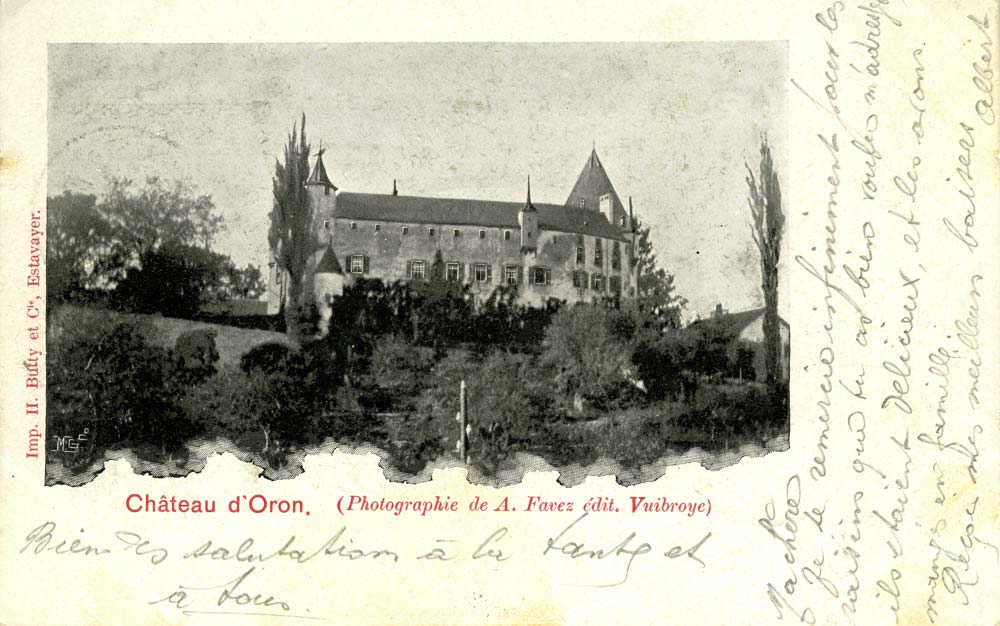 Imp. H. Butty et Cie, Estavayer.
MGF
Château d'Oron. (Photographie de A. Favez édit. Vuibroye)
Bien des salutation à la tante et
à tous.
Ma chère
Je te remercie infiniment pour les
raisins que tu as bien voulu m'adresser
ils étaient délicieux, et les avons
mangés en famille.
Reçoi mes meilleurs baisers Albert